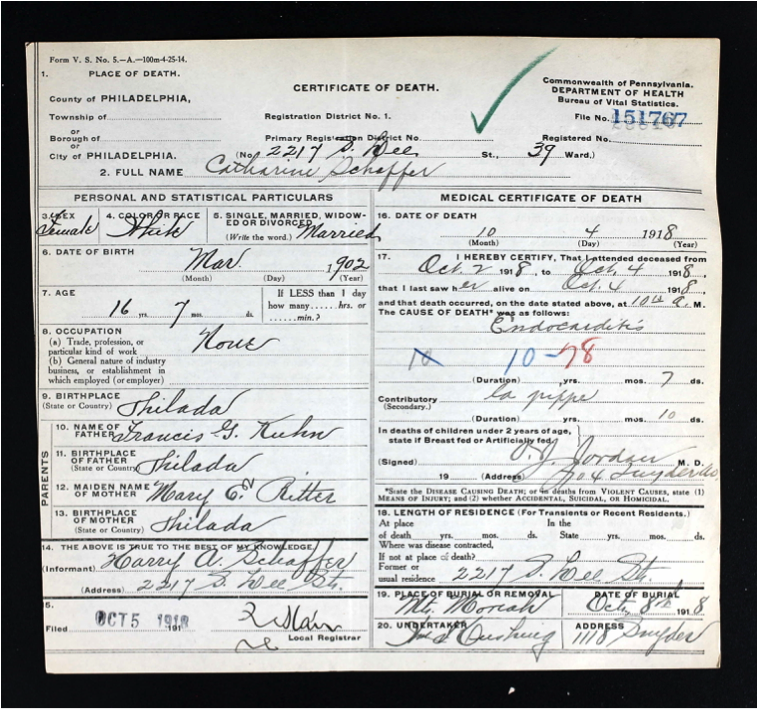 Form V. S. No. 5.—A.—100m-4-25-14.
1. PLACE OF DEATH.
CERTIFICATE OF DEATH.
Commonwealth of Pennsylvania.
DEPARTMENT OF HEALTH
Bureau of Vital Statistics.
County of PHILADELPHIA,
Township of
Registration District No. 1.
File No. 151767
or
Borough of
Primary Registration District No.
Registered No.
or
City of PHILADELPHIA. (No. 2217 S. Lee St., 39 Ward.)
2. FULL NAME Catharine Schaffer
PERSONAL AND STATISTICAL PARTICULARS
3. SEX
Female
4. COLOR OR RACE
White
5. SINGLE, MARRIED, WIDOW-
ED OR DIVORCED
(Write the word.) Married
6. DATE OF BIRTH
Mar. 1902
(Month) (Day) (Year)
7. AGE
16 yrs. 7 mos. ds.
If LESS than 1 day
how many......hrs. or
......min.?
8. OCCUPATION
(a) Trade, profession, or
particular kind of work
None
(b) General nature of industry
business, or establishment in
which employed (or employer)
9. BIRTHPLACE
(State or Country) Philada
PARENTS
10. NAME OF
FATHER Francis G. Kuhn
11. BIRTHPLACE
OF FATHER
(State or Country) Philada
12. MAIDEN NAME
OF MOTHER Mary C. Ritter
13. BIRTHPLACE
OF MOTHER
(State or Country) Philada
14. THE ABOVE IS TRUE TO THE BEST OF MY KNOWLEDGE
(Informant) Harry A. Schaffer
(Address) 2217 S. Lee St.
15.
Filed OCT 5 1918 191
Local Registrar
MEDICAL CERTIFICATE OF DEATH
16. DATE OF DEATH
10 4 1918
(Month) (Day) (Year)
17. I HEREBY CERTIFY, That I attended deceased from
Oct. 2 1918, to Oct. 4 1918,
that I last saw her alive on Oct. 4 1918,
and that death occurred, on the date stated above, at 10 a. M.
The CAUSE OF DEATH* was as follows:
Endocarditis
10 10-78
(Duration) yrs. mos. 7 ds.
Contributory la grippe
(Secondary.)
(Duration) yrs. mos. 10 ds.
In deaths of children under 2 years of age,
state if Breast fed or Artificially fed.
(Signed) Jordan M. D.
19 (Address) 704 Snyder Av
*State the DISEASE CAUSING DEATH; or in deaths from VIOLENT CAUSES, state (1)
MEANS OF INJURY; and (2) whether ACCIDENTAL, SUICIDAL, OR HOMICIDAL.
18. LENGTH OF RESIDENCE (For Transients or Recent Residents.)
At place In the
of death yrs. mos. ds. State yrs. mos. ds.
Where was disease contracted,
If not at place of death?
Former or
usual residence 2217 S. Lee St.
19. PLACE OF BURIAL OR REMOVAL
Mt. Moriah
DATE OF BURIAL
Oct. 8th 1918
20. UNDERTAKER
Cushing
ADDRESS
1118 Snyder